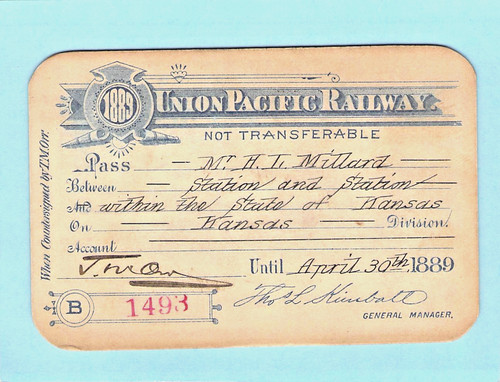 1889
UNION PACIFIC RAILWAY.
NOT TRANSFERABLE
Pass Mr H. L. Millard
Between Station and Station
And within the State of Kansas
On Kansas Division.
Account
When Countersigned by T.M. Orr.
T. M. Orr Until April 30th, 1889
B 1493 Thos L Kimball
GENERAL MANAGER.